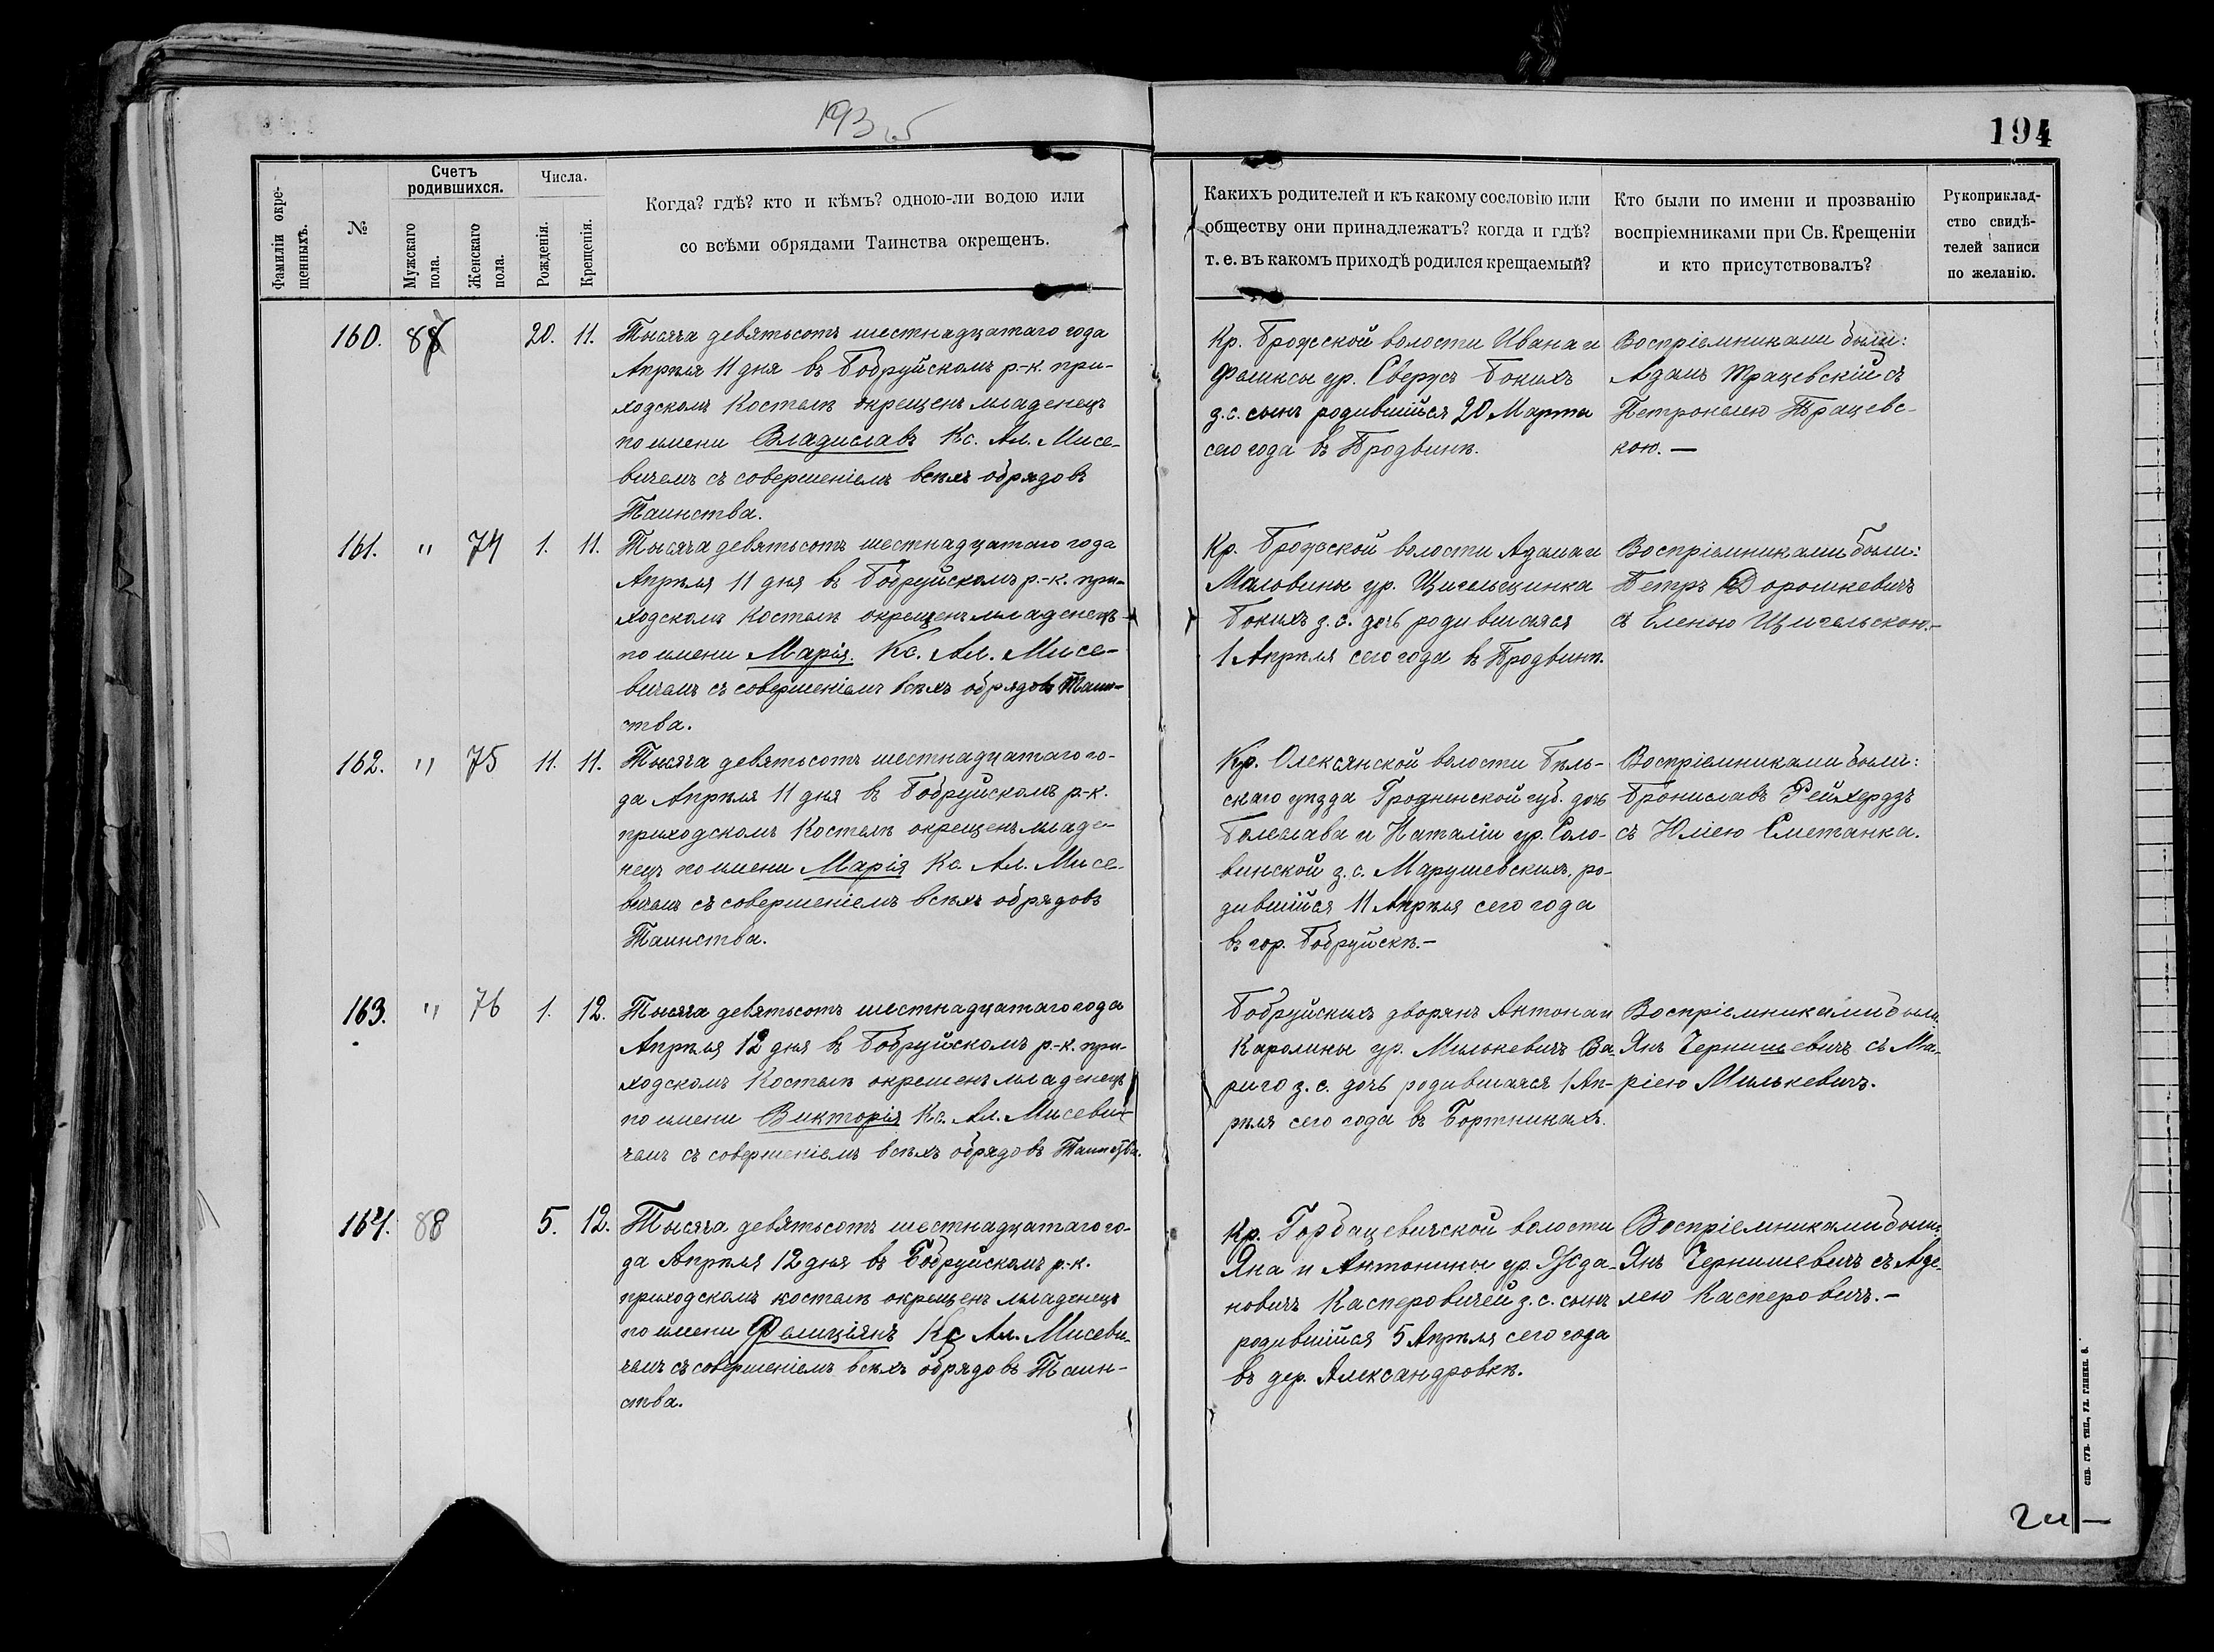 193 об
194
Фамиліи окре-
щенныхъ.
№
Счетъ
родившихся.
Мужскаго
пола.
Женскаго
пола.
Числа.
Рожденія.
Крещенія.
Когда? гдѣ? кто и кѣмъ? одною-ли водою или
со всѣми обрядами Таинства окрещенъ.
Каких​ъ родителей и къ какому сословію или
обществу они принадлежатъ? когда и гдѣ?
т. е. въ какомъ приходѣ родился крещаемый?
Кто были по имени и прозванію
воспріемниками при Св. Крещеніи
и кто присутствовалъ?
Рукоприклад-
ство свидѣ-
телей записи
по желанію.
160. 20. 11.
Тысяча девятьсотъ шестнадцатаго года
Апрѣля 11 дня въ Бобруйскомъ р.-к. при-
ходскомъ Костелѣ окрещенъ младенецъ
по имени Владиславъ Кс. Ал. Мисе-
вичемъ съ совершеніемъ всѣхъ обрядовъ
Таинства.
Кр. волости Ивана и
ур. Сверусъ Бокихъ
з.с. сынъ родившійся 20 Марта
сего года въ Продвинѣ.
Воспріемниками были:
Адамъ Трацевскій съ
Петронелею Трацевс-
кою. —
161. " 74 1. 11.
Тысяча девятьсотъ шестнадцатаго года
Апрѣля 11 дня въ Бобруйскомъ р.-к. при-
ходскомъ Костелѣ окрещенъ младенецъ
по имени Марія. Кс. Ал. Мисе-
вичемъ съ совершеніемъ всѣхъ обрядовъ Таин-
ства.
Кр. волости Адама и
Маловины ур. Щигельщинка
Бокихъ з. с. дочь родившаяся
1 Апрѣля сего года въ Продвинѣ.
Воспріемниками были:
Петръ Дорошкевичъ
съ Еленою Щигельскою.-
162. " 75 11. 11.
Тысяча девятьсотъ шестнадцатаго го-
да Апрѣля 11 дня въ Бобруйскомъ р-к.
приходскомъ Костелѣ окрещенъ младе-
нецъ по имени Марія Кс. Ал. Мисе-
вичемъ съ совершеніемъ всѣхъ обрядовъ
Таинства.
Кр. Олексянской волости Бѣль-
скаго уѣзда Гродненской губ. дочь
Болеслава и Наталіи ур. Соло-
винской з. с. Марушевскихъ, ро-
дившійся 11 Апрѣля сего года
въ гор. Бобруйскѣ.-
Воспріемниками были:
Брониславъ Рейхердъ
съ Юліею Сметанка.
163. " 76 1. 12.
Тысяча девятьсотъ шестнадцатаго года
Апрѣля 12 дня въ Бобруйскомъ р.-к. при-
ходскомъ Костелѣ окрещенъ младенецъ
по имени Викторія Кс. Ал. Мисеви-
чемъ съ совершеніемъ всѣхъ обрядовъ Таинства.
Бобруйскихъ дворянъ Антона и
Каролины ур. Милькевичъ Ва-
риго з. с. дочь родившаяся 1 Ап-
рѣля сего года въ Бортникахъ.
Воспріемниками были:
Янъ Чернишевичъ съ Ма-
ріею Милькевичъ.
164. 88 5. 12.
Тысяча девятьсотъ шестнадцатаго го-
да Апрѣля 12 дня въ Бобруйскомъ р.-к.
приходскомъ костелѣ окрещенъ младенецъ
по имени Фелиціянъ Кс Ал. Мисеви-
чемъ съ совершеніемъ всѣхъ обрядовъ Таин-
ства.
Кр. Горбацевичской волости
Яна и Антонины ур. Жда-
новичъ Касперовичей з. с. сынъ
родившійся 5 Апрѣля сего года
въ дер. Александровкѣ.
Воспріемниками были:
Янъ Чернишевичъ съ Аде-
лею Касперовичъ.-
СПБ. ГУБ. ТИП., УЛ. ГЛИНКИ, 6.